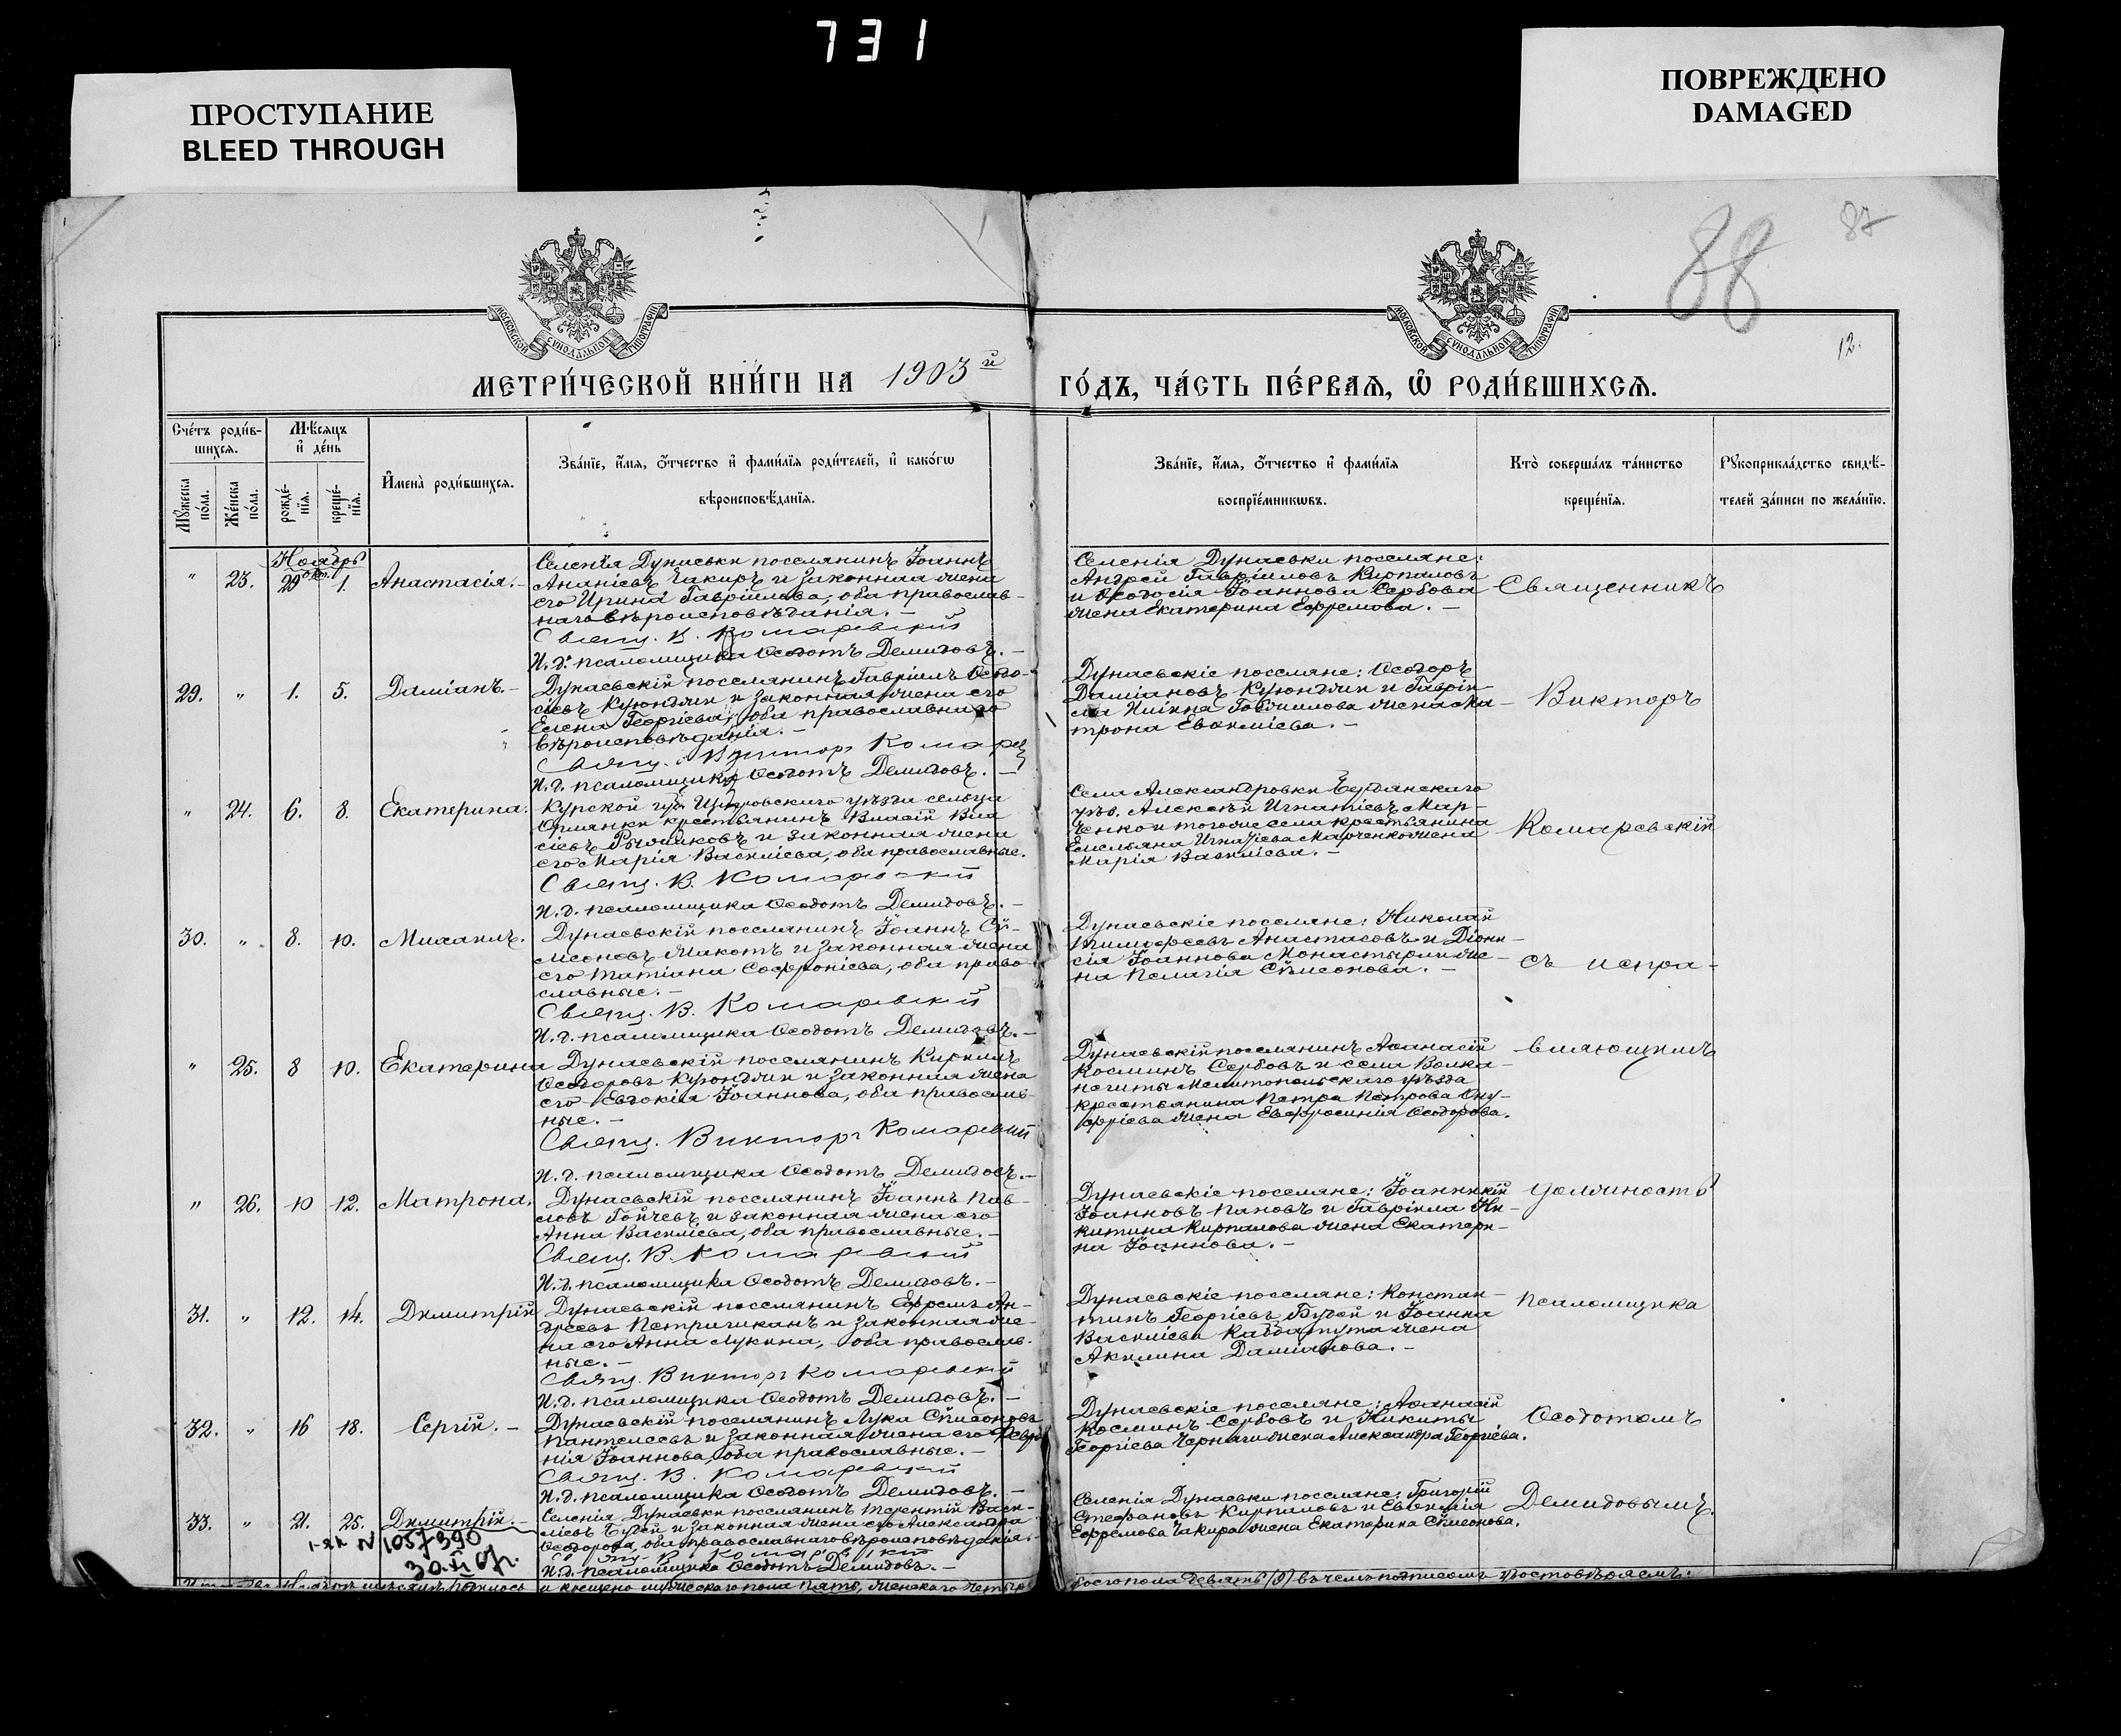 731
ПРОСТУПАНИЕ
BLEED THROUGH
ПОВРЕЖДЕНО
DAMAGED
88
87
12.
МОСКОВСКОЙ СѴНОДАЛЬНОЙ ТИПОГРАФІИ
МОСКОВСКОЙ СѴНОДАЛЬНОЙ ТИПОГРАФІИ
МЕТРИ́ЧЕСКОЙ КНИ́ГИ НА 1903й
ГО́ДЪ, ЧА́СТЬ ПЕ́РВАЯ, Ѽ РОДИ́ВШИХСЯ.
Сче́тъ роди́в-
шихся.
Мужеска по́ла.
Же́нска по́ла.
Мѣ́сяцъ
и҆ де́нь
рожде́-
нїя.
креще́-
нїя.
И҆мена̀ роди́вшихся.
Зва́нїе, и҆́мя, ѻ҆́тчество и҆ фами́лїя роди́телей, и҆ како́гѡ
вѣроисповѣ́данїя.
Зва́нїе, и҆́мя, ѻ҆́тчество и҆ фами́лїя
воспрїе́мникѡвъ.
Кто̀ соверша́лъ та́инство
креще́нїя.
Рꙋкоприкла́дство свидѣ́-
телей за́писи по жела́нїю.
Ноябрь
" 23. 29 окт. 1. Анастасія.-
Селенія Дунаевки поселянинъ Іоаннъ
Ананіевъ Чакиръ и законная жена
его Ирина Гавріилова, оба православ-
наго вѣроисповѣданія.-
Свящ. В. Комаревскій
И.д. псаломщика Ѳеодотъ Демидовъ.-
Селенія Дунаевки поселяне:
Андрей Гавріиловъ Кирпаловъ
и Ѳеодосія Іоаннова Сербова
жена Екатерина Ефремова.-
Священникъ
29. " 1. 5. Даміанъ.-
Дунаевскій поселянинъ Гавріилъ Ѳеодо-
сіевъ Куюнджи и законная жена его
Елена Георгіева, оба православнаго
вѣроисповѣданія.-
Свящ. Викторъ Комарев
И.д. псаломщика Ѳеодотъ Демидовъ.-
Дунаевскіе поселяне: Ѳеодоръ
Даміановъ Куюнджи и Гаврі-
жена Ма-
трона Евѳиміева.-
Викторъ
" 24. 6. 8. Екатерина.
Курской губ. Щигровскаго уѣзда сельца
Орлянки крестьянинъ Власій Вла
сіевъ и законная жена
его Марія Василіева, оба православные.
Свящ. В. Комаревскій
И.д. псаломщика Ѳеодотъ Демидовъ.-
Села Александровки Бердянскаго
уѣз. Алексѣй Игнатіевъ Мар-
ченко и того же села крестьянина
Емельяна Игнатіева Марченко жена
Марія Василіева.-
Комаревскій
30. " 8. 10. Михаилъ.
Дунаевскій поселянинъ Іоаннъ Сѵ-
меоновъ и законная жена
его Татіана Софроніева, оба право
славные.-
Свящ. В. Комаревскій
И.д. псаломщика Ѳеодотъ Демидовъ.-
Дунаевскіе поселяне: Николай
Тимоѳеевъ Анастасовъ и Діони-
сія Іоаннова Монастырли же-
на Пелагія Сѵмеонова.-
съ испра-
" 25. 8 10. Екатерина
Дунаевскій поселянинъ Кириллъ
Ѳеодоровъ Куюнджи и законная жена
его Евдокія Іоаннова, оба православ-
ные.-
Свящ. Викторъ Комаревскій
И.д. псаломщика Ѳеодотъ Демидовъ.-
Дунаевскій поселянинъ Аѳанасій
Косминъ Сербовъ и села Волка-
нешты Мелитопольскаго уѣзда
крестьянина Петра Петрова Ону-
фріева жена Евфросинія Ѳеодорова.
вляющимъ
" 26. 10 12. Матрона.
Дунаевскій поселянинъ Іоаннъ Пав-
ловъ Гойчевъ и законная жена его
Анна Василіева, оба православные.-
Свящ. В. Комаревскій
И.д. псаломщика Ѳеодотъ Демидовъ.-
Дунаевскіе поселяне: Іоанникій
Іоанновъ Пановъ и Гавріила Ни-
китина Кирпалова жена Екатери-
на Іоаннова.-
должность
31. " 12. 14. Димитрій
Дунаевскій поселянинъ Ефремъ Ан-
дреевъ Петричиканъ и законная же-
на его Анна Лукина, оба православ-
ные.-
Свящ. Викторъ Комаревскій
И.д. псаломщика Ѳеодотъ Демидовъ.-
Дунаевскіе поселяне: Констан-
тинъ Георгіевъ и Іоанна
Василіева жена
Акилина Даміанова.-
псаломщика
32. " 16 18. Сергій.-
Дунаевскій поселянинъ Лука Сѵмеоновъ
Пантелеевъ и законная жена его Февро-
нія Іоаннова, оба православные.-
Свящ. В. Комаревскій
И.д. псаломщика Ѳеодотъ Демидовъ.-
Дунаевскіе поселяне: Аѳанасій
Косминъ Сербовъ и Никиты
Георгіева жена Александра Георгіева.
Ѳеодотомъ
33. " 21. 25. Димитрій.-
Селенія Дунаевки поселянинъ Терентій Васи-
ліевъ и законная жена его Александра
Ѳеодорова, оба православнаго вѣроисповѣданія.-
И.д. псаломщика Ѳеодотъ Демидовъ.-
Селенія Дунаевки поселяне: Григорій
Стефановъ Кирпаловъ и Евѳимія
Ефремова Чакира жена Екатерина Сѵмеонова.
Демидовымъ.
N 1057390
и крещено мужескаго пола пять, женскаго четыре
обоего пола девять (9) въ чемъ подписомъ удостовѣряемъ: